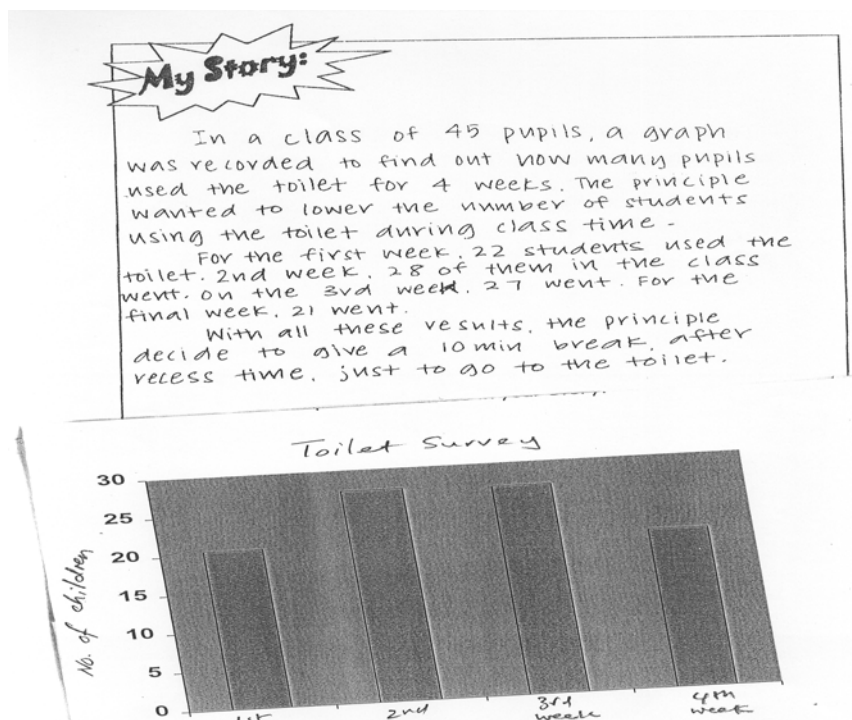 My Story:
In a class of 45 pupils, a graph
was recorded to find out how many pupils
used the toilet for 4 weeks. The principle
wanted to lower the number of students
using the toilet during class time.
For the first week, 22 students used the
toilet. 2nd week, 28 of them in the class
went. On the 3rd week, 27 went. For the
final week, 21 went.
With all these results, the principle
decide to give a 10 min break, after
recess time, just to go to the toilet.
Toilet Survey
No. of children
30
25
20
15
10
5
0
1st
2nd
3rd week
4th week